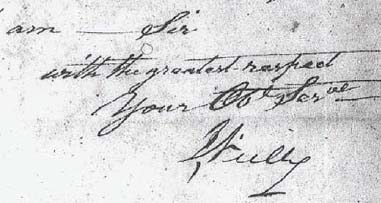 am — Sir
with the greatest respect
Your Obt Serve